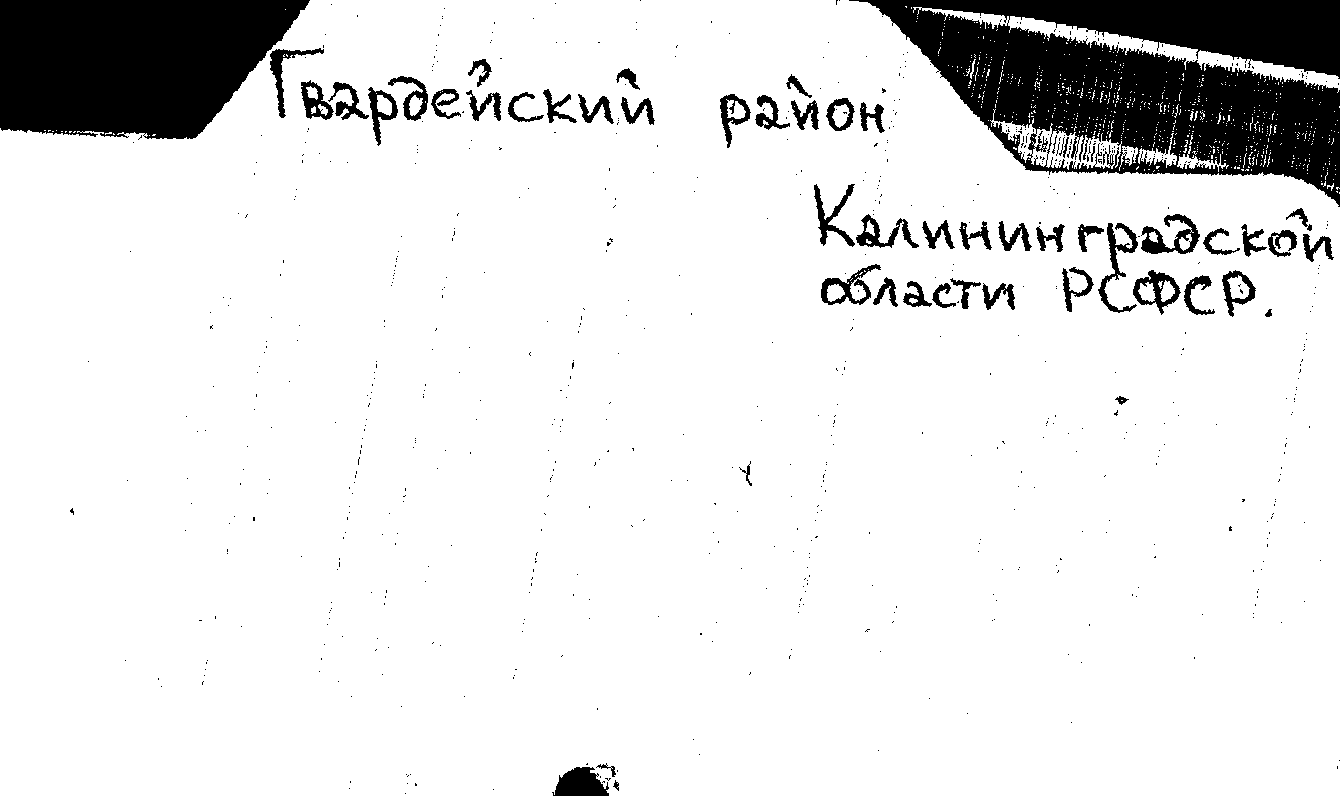 Гвардейский район
Калининградской
области РСФСР.